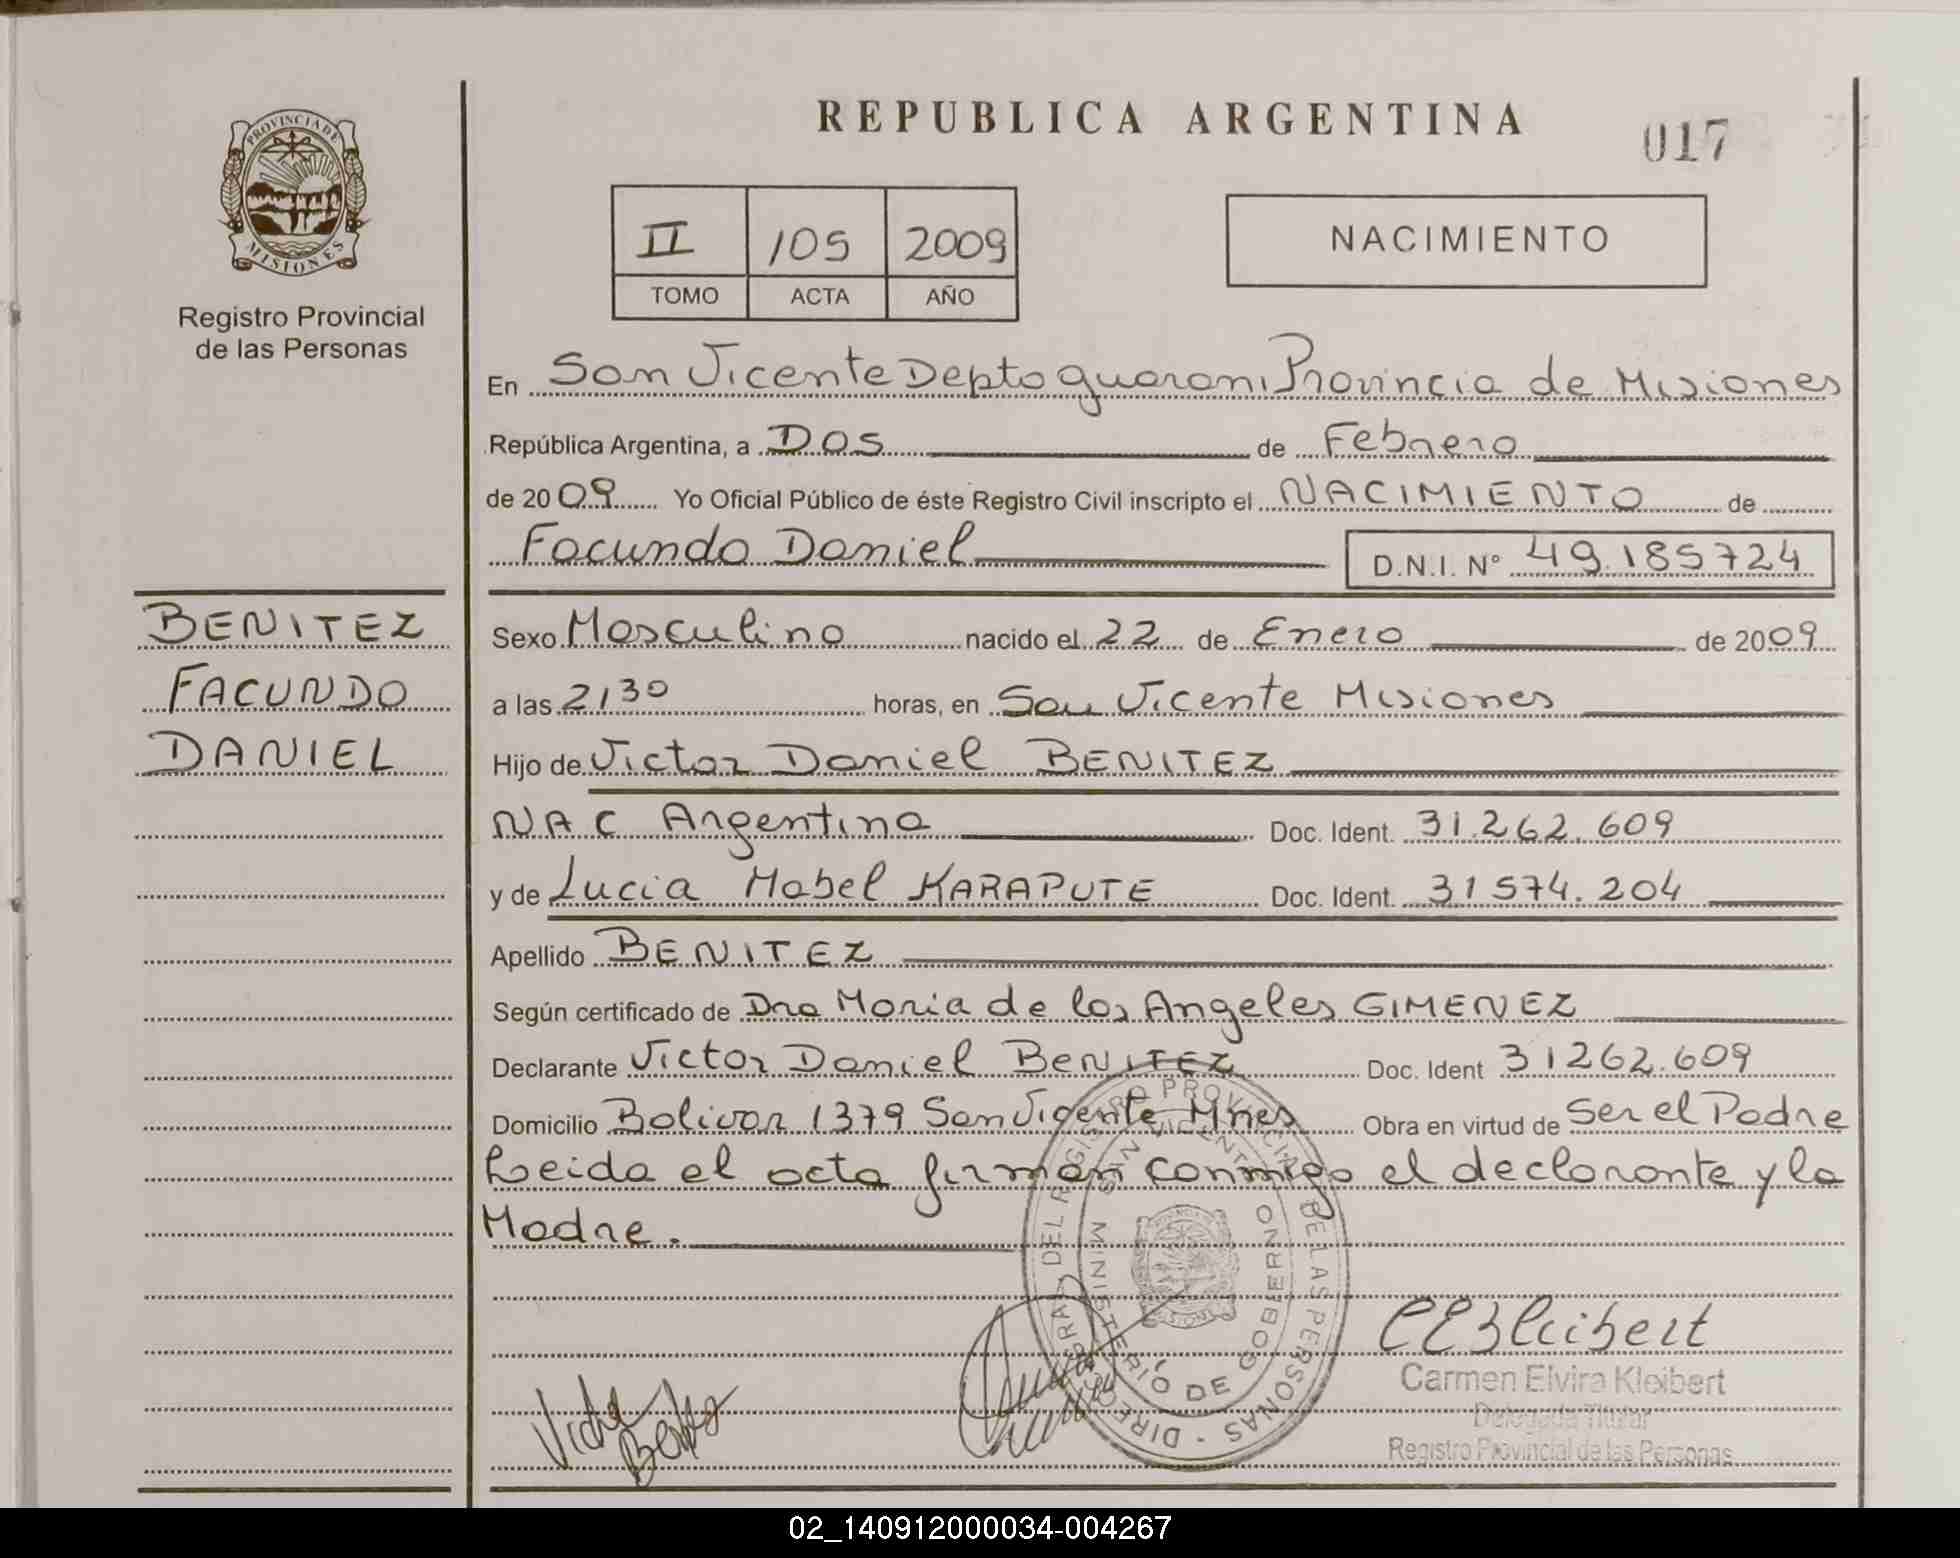 REPUBLICA ARGENTINA
017
PROVINCIA DE
MISIONES
Registro Provincial
de las Personas
II 105 2009
TOMO ACTA AÑO
NACIMIENTO
En San Vicente Depto guarani Provincia de Misiones
República Argentina, a DOS de Febrero
de 2009 Yo Oficial Público de éste Registro Civil inscripto el NACIMIENTO de
Facundo Daniel D.N.I. N° 49.185724
BENITEZ
FACUNDO
DANIEL
Sexo Masculino nacido el 22 de Enero de 2009
a las 2130 horas, en San Vicente Misiones
Hijo de Victor Daniel BENITEZ
NAC Argentina Doc. Ident. 31.262.609
y de Lucia Mabel KARAPUTE Doc. Ident. 31574.204
Apellido BENITEZ
Según certificado de Dra Maria de los Angeles GIMENEZ
Declarante Victor Daniel BENITEZ Doc. Ident 31262.609
Domicilio Bolivar 1379 San Vicente Mnes Obra en virtud de Ser el Padre
Leida el acta firman conmigo el declarante y la
Madre.
DIREC. GRAL. DEL REGISTRO PROVINCIAL DE LAS PERSONAS
SAN VICENTE
MINISTERIO DE GOBIERNO
CEKleibert
Carmen Elvira Kleibert
Delegada Titular
Registro Provincial de las Personas
02_140912000034-004267